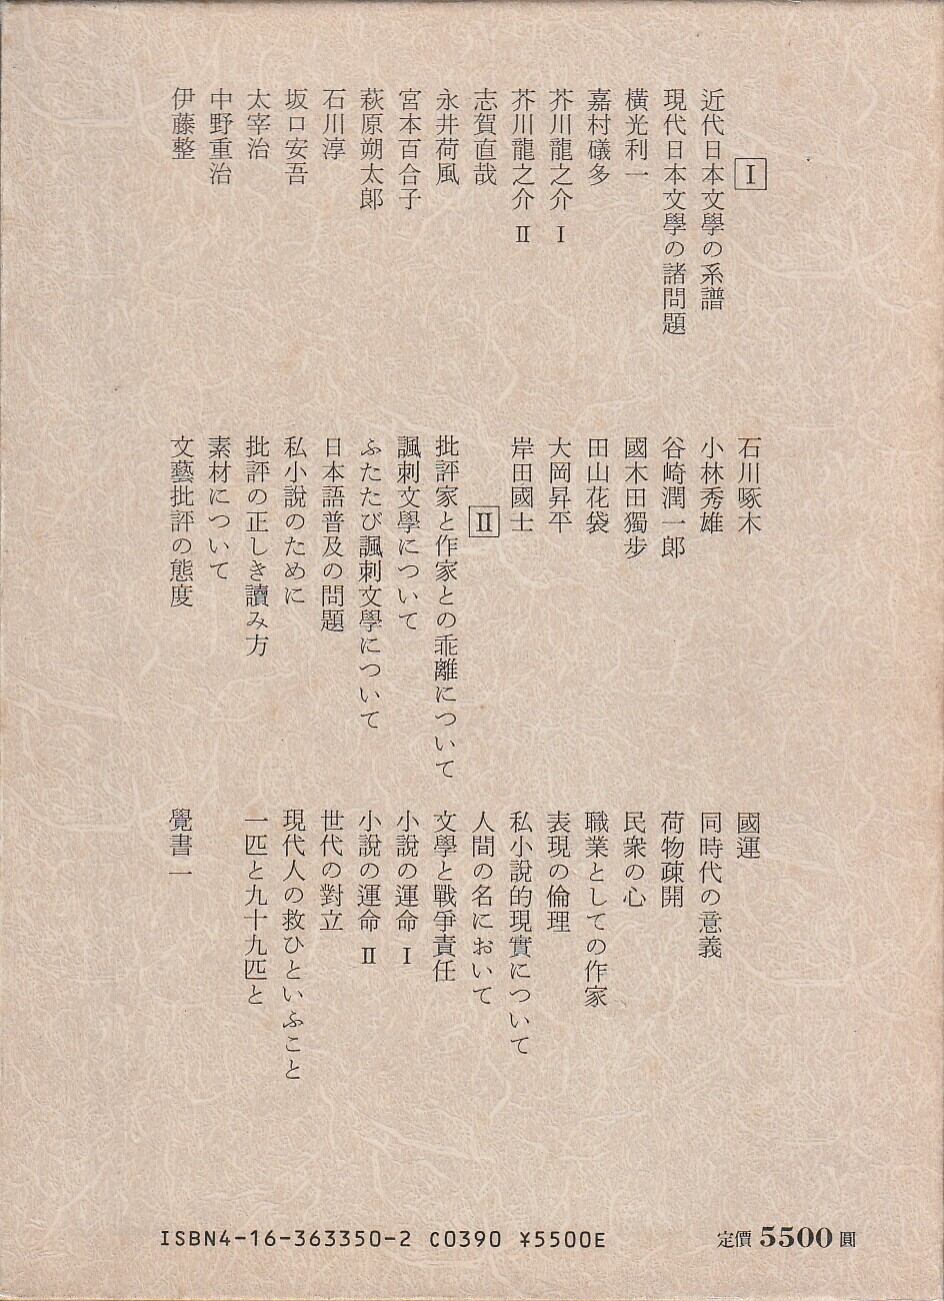 Ⅰ
近代日本文學の系譜
現代日本文學の諸問題
橫光利一
嘉村礒多
芥川龍之介 Ⅰ
芥川龍之介 Ⅱ
志賀直哉
永井荷風
宮本百合子
萩原朔太郎
石川淳
坂口安吾
太宰治
中野重治
伊藤整
石川啄木
小林秀雄
谷崎潤一郎
國木田獨步
田山花袋
大岡昇平
岸田國士
Ⅱ
批評家と作家との乖離について
諷刺文學について
ふたたび諷刺文學について
日本語普及の問題
私小說のために
批評の正しき讀み方
素材について
文藝批評の態度
國運
同時代の意義
荷物疎開
民衆の心
職業としての作家
表現の倫理
私小說的現實について
人間の名において
文學と戰爭責任
小說の運命 Ⅰ
小說の運命 Ⅱ
世代の對立
現代人の救ひといふこと
一匹と九十九匹と
覺書一
ISBN4-16-363350-2 C0390 ¥5500E
定價 5500 圓